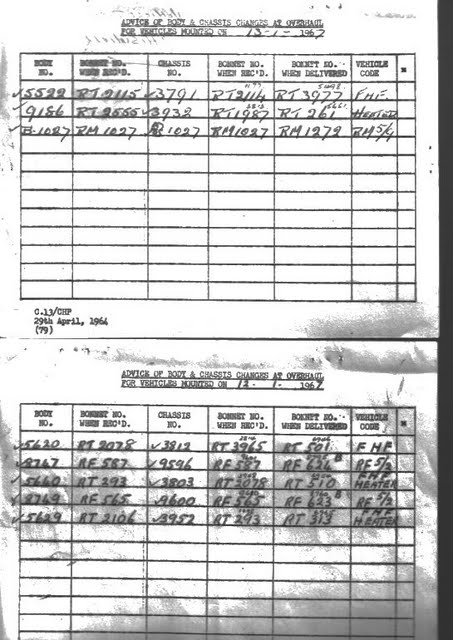 ADVICE OF BODY & CHASSIS CHANGES AT OVERHAUL
FOR VEHICLES MOUNTED ON 13-1- 1967
BODY NO. BONNET NO. WHEN REC'D. CHASSIS NO. BONNET NO. WHEN REC'D. BONNET NO. WHEN DELIVERED VEHICLE CODE
✓5522 RT2115 ✓3791 RT2114 RT3977 FHF.
✓9186 RT2555 ✓3932 RT1987 RT 261 HEATER
✓B-1027 RM1027 1027 RM1027 RM1272 RM5/4
C.13/CHP
29th April, 1964
(79)
ADVICE OF BODY & CHASSIS CHANGES AT OVERHAUL
FOR VEHICLES MOUNTED ON 12-1- 1967
BODY NO. BONNET NO. WHEN REC'D. CHASSIS NO. BONNET NO. WHEN REC'D. BONNET NO. WHEN DELIVERED VEHICLE CODE
✓5620 RT2078 ✓3812 RT3965 RT501 FHF
✓8747 RF587 ✓9596 RF587 RF624 B RF5/2
✓5640 RT293 ✓3803 RT2078 RT510 FHF HEATER
✓8749 RF565 ✓9600 RF565 RF623 B RF5/2
✓5629 RT2106 ✓3952 RT293 RT313 FHF HEATER